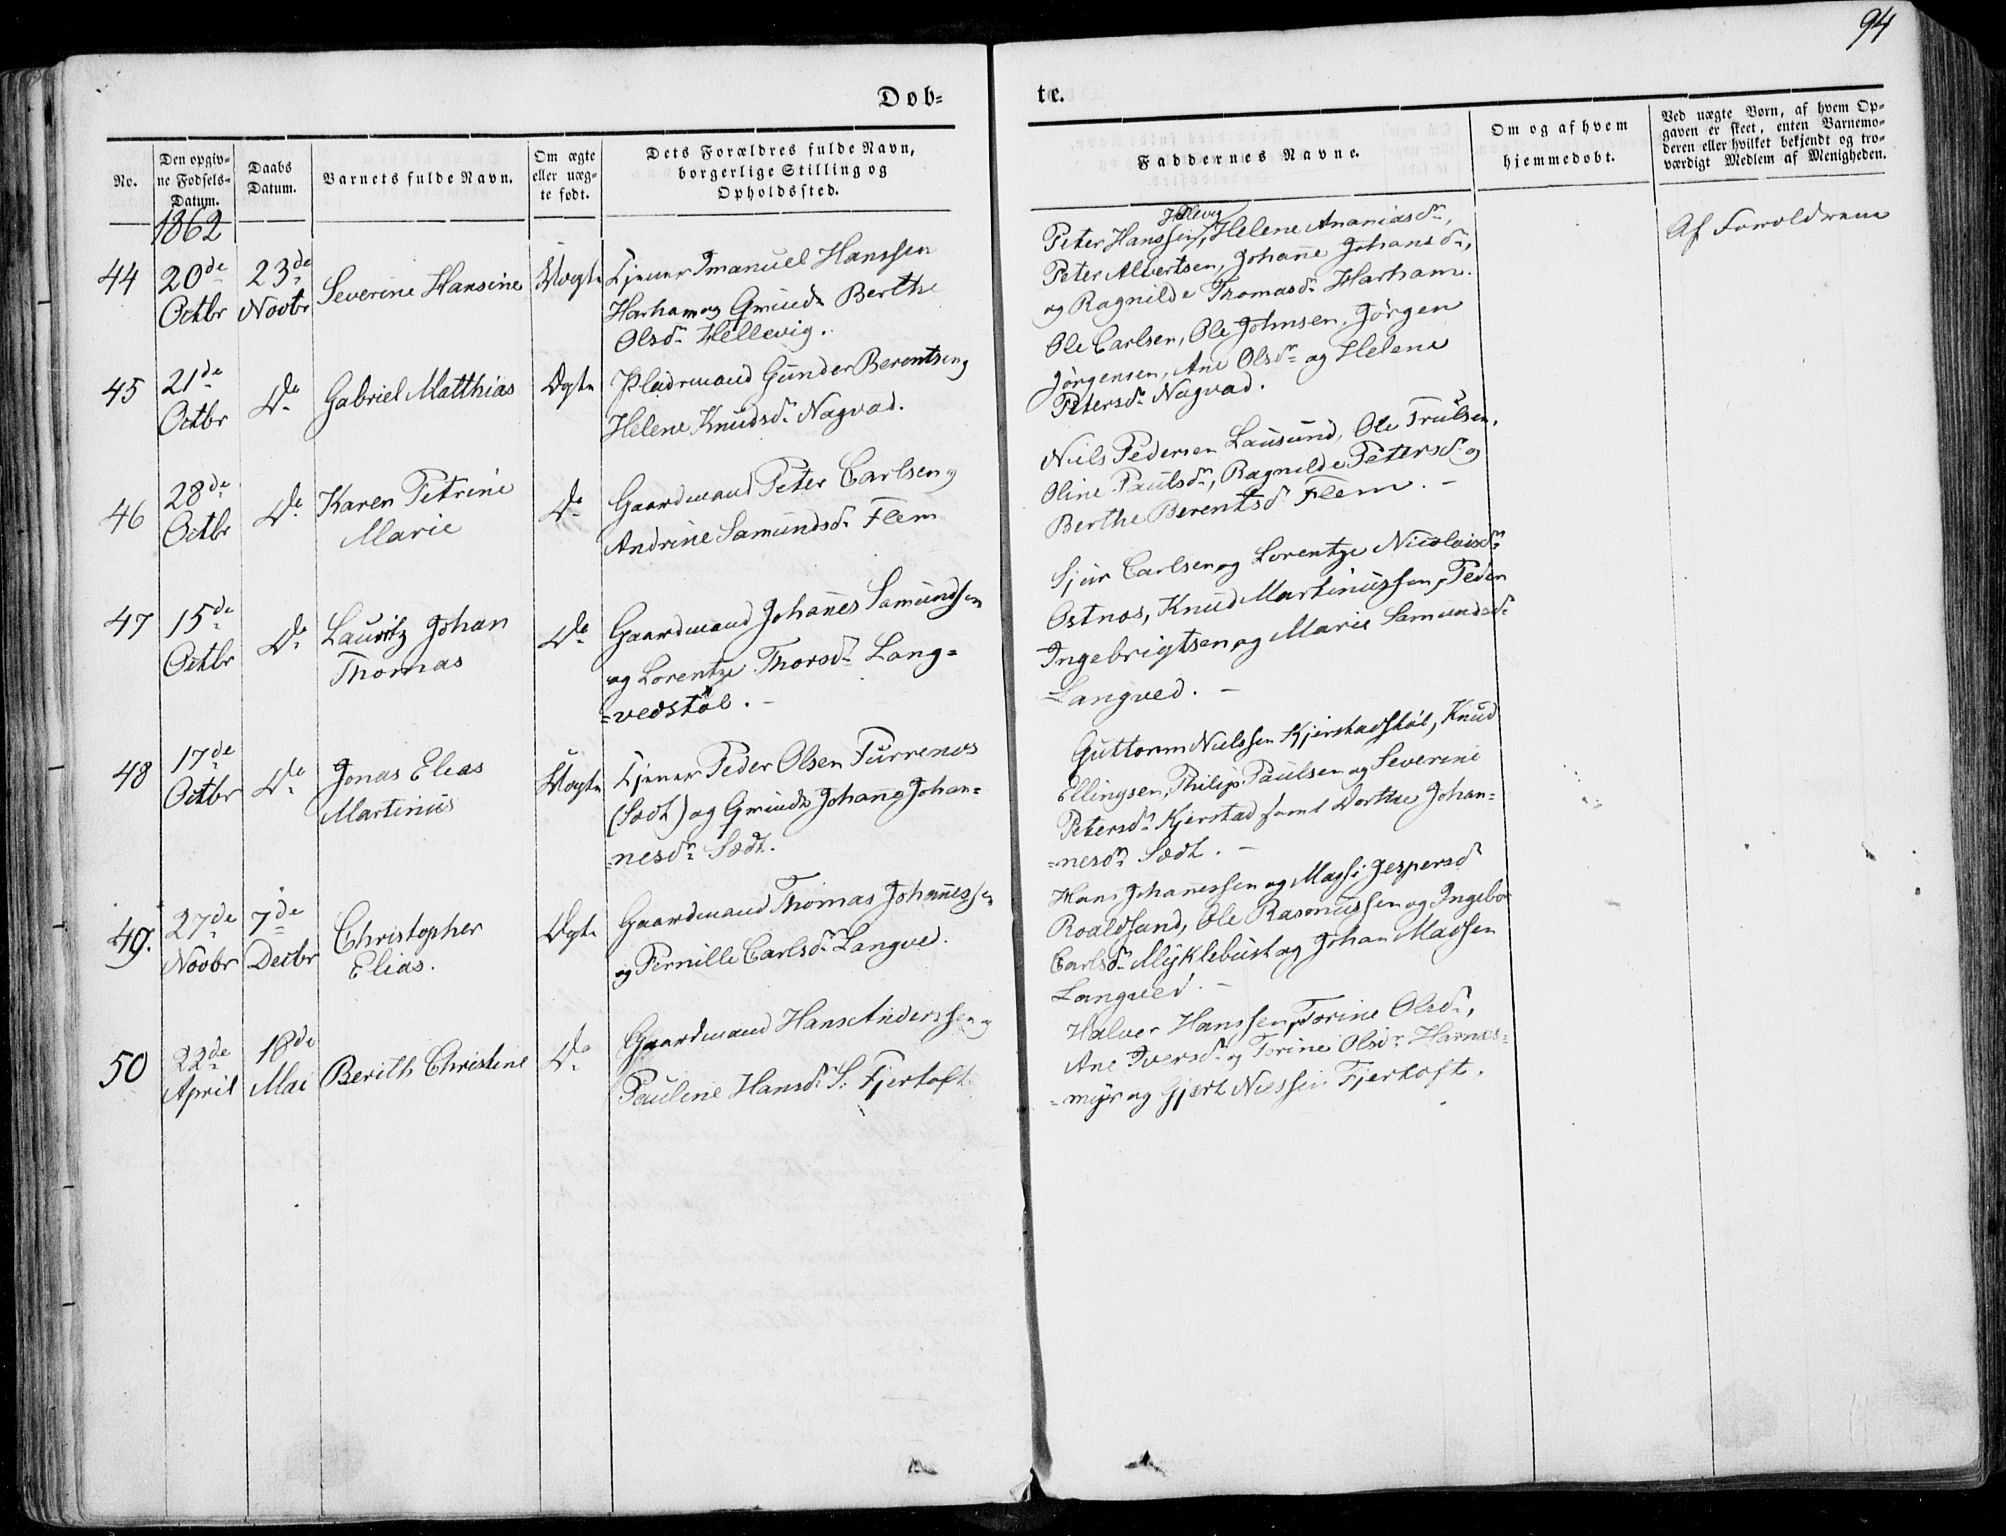 94
Døb=
te.
No.
Den opgiv=
ne Fødsels=
Datum.
Daabs
Datum.
Barnets fulde Navn.
Om ægte
eller uæg=
te født.
Dets Forældres fulde Navn,
borgerlige Stilling og
Opholdssted.
Faddernes Navne.
Om og af hvem
hjemmedøbt.
Ved uægte Børn, af hvem Op=
gaven er skeet, enten Barnemo=
deren eller hvilket bekjendt og tro=
værdigt Medlem af Menigheden.
1862
44
20de
Octbr
23de
Novbr
Severine Hansine
Uægte
Tjener Imanuel Hanssen
Harham og Gminde Berthe
Olsdr Hellevig.
Hellevig
Peter Hanssen, Helene Ananiasdr,
Peter Alvertsen, Johanne Johansdr,
og Ragnilde Thomasdr Harham.
Af Forældrene
45
21de
Octbr
Do
Gabriel Matthias
Ægte
Pladsmand Gunder Berentsen og
Helene Knudsdr Nogvad.
Ole Carlsen, Ole Johnsen, Jørgen
Jørgensen, Ane Olsdr og Helene
Petersdr Nogvad.
46
28de
Octbr
Do
Karen Petrine
Marie
Do
Gaardmand Peter Carlsen og
Andrine Samundsdr Flem
Niels Pedersen Lausund, Ole Trulsen,
Oline Paulsdr, Ragnilde Petersdr og
Berthe Berentsdr Flem. -
47
15de
Octbr
Do
Lauritz Johan
Thomas
Do
Gaardmand Johanes Samundsen
og Lorentze Thorsdr Lang=
=vedstøl. -
Sjur Carlsen og Lorentze Nicolaisdr
Ostnos, Knud Martinussen, Peder
Ingebrigtsen og Marie Samundsdr
Langved. -
48
17de
Octbr
Do
Jonas Elias
Martinus
Uægte
Tjener Peder Olsen Purrenos
(Sædt) og Gminde Johanne Johan=
=nesdr Sædt.
Guttorm Nielssen Kjerstadstøl, Knud
Ellingsen, Philip Paulsen og Severine
Petersdr Kjerstad samt Dorthe Johan=
=nesdr Sædt. -
49.
27de
Novbr
7de
Decbr
Christopher
Elias.
Ægte
Gaardmand Thomas Johannessen
og Pernille Carlsdr Langved.
Hans Johannessen og Massi Jespersdr
Roaldsand, Ole Rasmussen og Ingebor
Carlsdr Myklebust og Johan Madsen
Langved. -
50
22de
April
18de
Mai
Berith Christine
Do
Gaardmand Hans Anderssen og
Pauline Hansdr S. Fjertoft.
Halvor Hanssen, Torine Olsdr,
Ane Iversdr og Torine Olsdr Harnæs=
=myr og Gjert Nielssen Fjertoft.